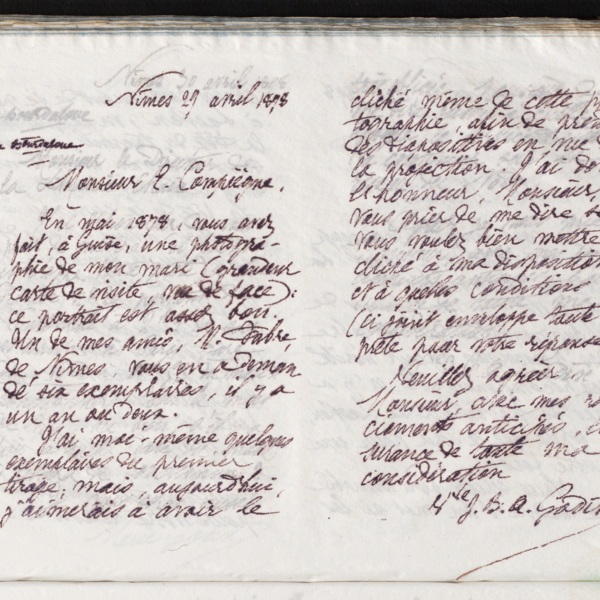 Nîmes 29 avril 1898
Bourdaloue
Monsieur E. Compiègne,
En mai 1878, vous avez
fait, à Guise, une photogra-
phie de mon mari (grandeur
carte de visite, vue de face):
ce portrait est assez bon.
Un de mes amis, M. Fabre,
de Nîmes, vous en a deman
dé six exemplaires, il y a
un an ou deux.
J'ai moi-même quelques
exemplaires du premier
tirage; mais, aujourd'hui,
j'aimerais à avoir le
cliché même de cette p
tographie, afin de pren
des diapositives en vue d
la projection. J'ai do
l'honneur, Monsieur,
vous prier de me dire s
vous voulez bien mettre
cliché à ma disposition
et à quelles conditions
(ci joint enveloppe toute
prête pour votre réponse
Veuillez agréer
Monsieur, avec mes re
ciements anticipés,
surance de toute ma
considération
Vve J. B. A. Godin